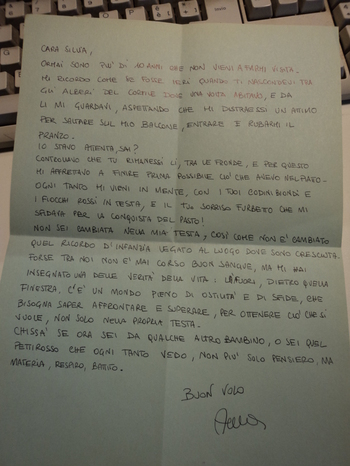 CARA SILVIA,
ORMAI SONO PIU' DI 10 ANNI CHE NON VIENI A FARMI VISITA.
MI RICORDO COME SE FOSSE IERI QUANDO TI NASCONDEVI TRA
GLI ALBERI DEL CORTILE DOVE UNA VOLTA ABITAVO, E DA
LI MI GUARDAVI, ASPETTANDO CHE MI DISTRAESSI UN ATTIMO
PER SALTARE SUL MIO BALCONE, ENTRARE E RUBARMI IL
PRANZO.
IO STAVO ATTENTA, SAI?
CONTROLLAVO CHE TU RIMANESSI LI, TRA LE FRONDE, E PER QUESTO
MI AFFRETTAVO A FINIRE PRIMA POSSIBILE CIO' CHE AVEVO NEL PIATTO.
OGNI TANTO MI VIENI IN MENTE, CON I TUOI CODINI BIONDI E
I FIOCCHI ROSSI IN TESTA, E IL TUO SORRISO FURBETTO CHE MI
SFIDAVA PER LA CONQUISTA DEL PASTO!
NON SEI CAMBIATA NELLA MIA TESTA, COSI COME NON E' CAMBIATO
QUEL RICORDO D'INFANZIA LEGATO AL LUOGO DOVE SONO CRESCIUTA.
FORSE TRA NOI NON E' MAI CORSO BUON SANGUE, MA MI HAI
INSEGNATO UNA DELLE VERITÀ DELLA VITA: LÀ FUORI, DIETRO QUELLA
FINESTRA, C'E' UN MONDO PIENO DI OSTILITÀ E DI SFIDE, CHE
BISOGNA SAPER AFFRONTARE E SUPERARE, PER OTTENERE CIO' CHE SI
VUOLE, NON SOLO NELLA PROPRIA TESTA.
CHISSA' SE ORA SEI DA QUALCHE ALTRO BAMBINO, O SEI QUEL
PETTIROSSO CHE OGNI TANTO VEDO, NON PIU' SOLO PENSIERO, MA
MATERIA, RESPIRO, BATTITO.
BUON VOLO